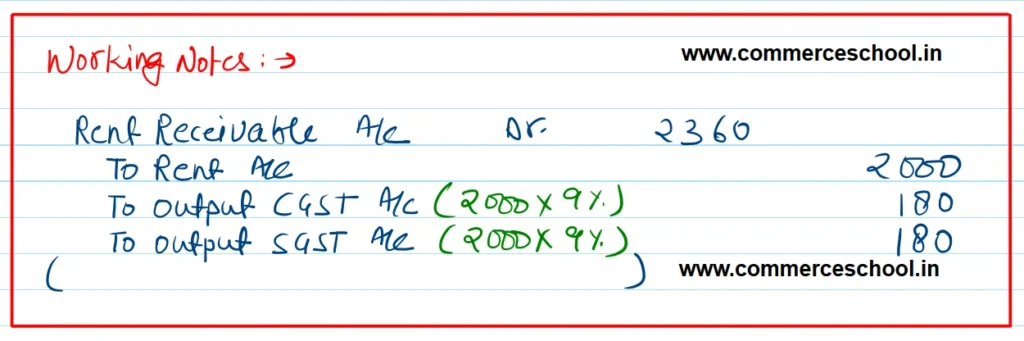 Working Notes : →
www.commerceschool.in
Rent Receivable A/c Dr. 2360
To Rent A/c 2000
To Output CGST A/c (2000 X 9%.) 180
To Output SGST A/c (2000 X 9%.) 180
( )
www.commerceschool.in